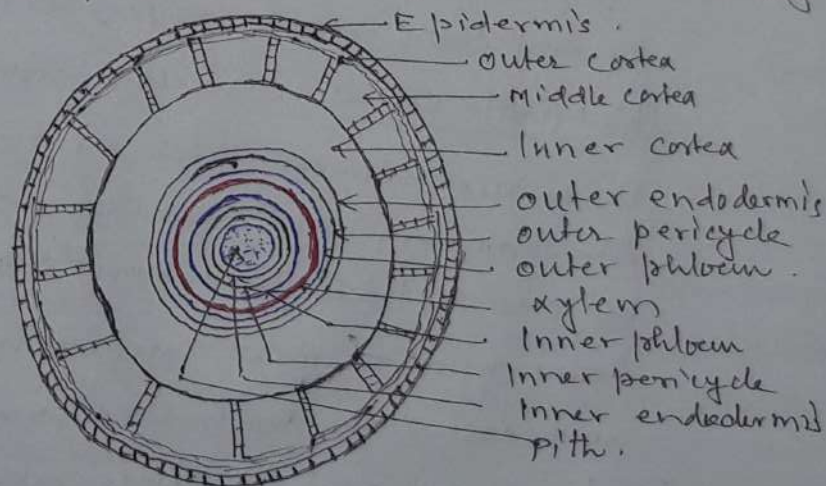 Epidermis.
outer cortea
middle cortea
Inner cortea
outer endodermis
outer pericycle
outer phloem.
xylem
Inner phloem
Inner pericycle
Inner endodermis
Pith.